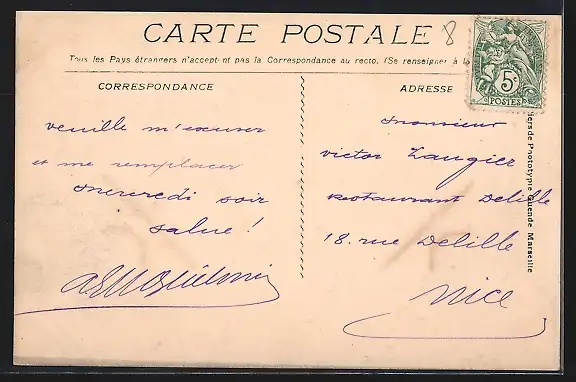 CARTE POSTALE
8
Tous les Pays étrangers n'acceptent pas la Correspondance au recto. (Se renseigner à la
CORRESPONDANCE
veuille m'excuser
et me remplacer
mercredi soir
salue!
ADRESSE
Monsieur
Victor Laugier
Restaurant Delille
18. rue Delille
Nice
5c
POSTES
liers de Phototypie Guende Marseille